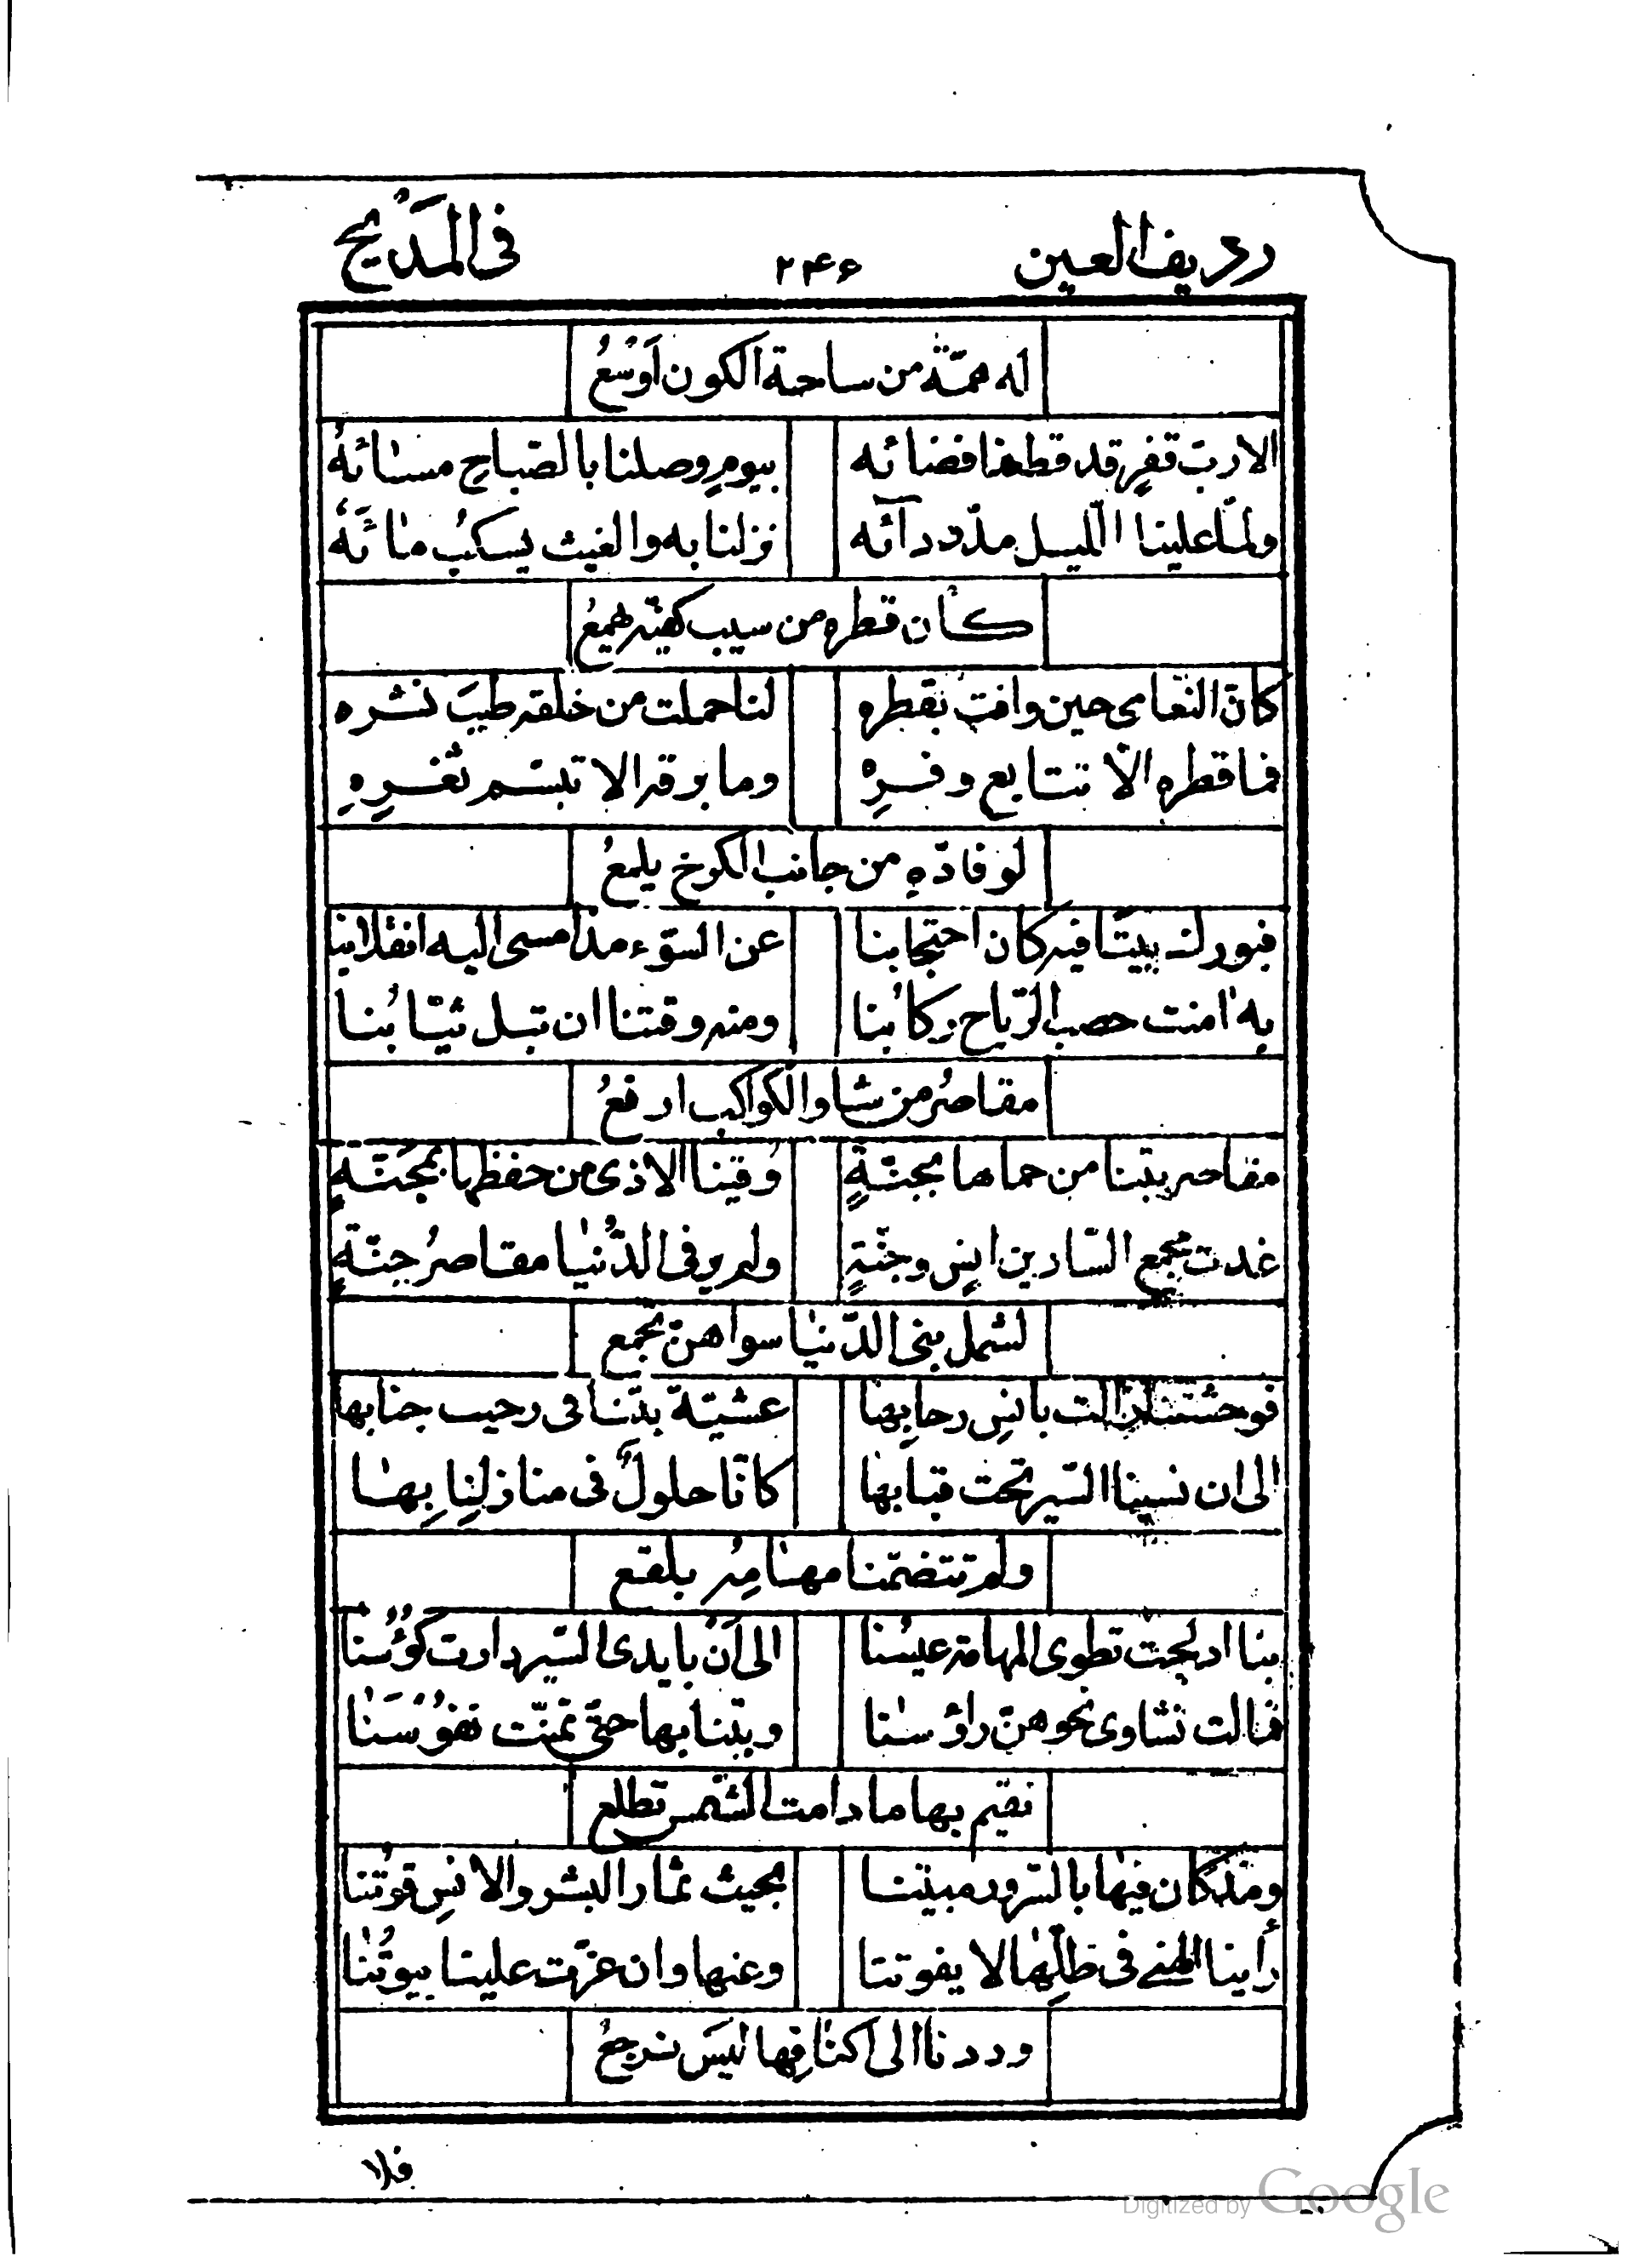 رديف العين ٢٤۶ فى المَديح
له همّة من ساحة الكون اَوْسَعُ
الا ربّ قفرٍ قد قطعنا فضائه بيومٍ وصلنا بالصّباحِ مسائهُ
ولمّا علينا اللّيل مدّ ردآئه نزلنا به والغيث يسكبُ مائَهُ
كأن قطره من سيب كفّيه يهمعُ
كانّ النعامى حين وافت بقطره لنا حملت من خلقه طيبَ نشره
فما قطره الاّ تتابع وفرِهِ وما برقه الا تبسّم ثغرِهِ
لوفادهِ من جانب الكرخ يلمعُ
فبورك بيتًا فيه كان احتجابنا عن السّوء مذ امسى اليه انقلابنا
به امنت حصب الرّياح ركابُنا ومنه وقتنا ان تبل ثيابُنا
مقاصرُ من شاو الكواكب ارفعُ
مقاصر بتنا من حماها بجنّةٍ وُقينا الاذى من حفظها بمجَنّةٍ
غدت مجمع السّارين انسٍ وجنّةٍ ولم ير فى الدُّنيا مقاصرُ جنّةٍ
لشمل بنى الدّنيا سواهنّ مجمع
بانسِ رحابِها عشيّة بتنا فى رحيب جنابها
الى ان نسينا السّير تحت قبابها كانّا حلولٌ فى منازلِنا بِها
ولم تتضمّنا مهامِه بلقع
بنا ادلجت تطوى المهامه عيسُنا الى اَنْ بايدى السّير دارت كؤُسُنا
فمالت نشاوى نحوهنّ راؤسنا وبتنا بها حتّى تمنّت نفوُسَنا
نقيم بها ما دامت الشّمس تطلع
ومذ كان فيها بالسّرور مبيتنا بحيث ثمار البشر والانسِ قوتُنا
رأينا الهنى فى ظلّها لا يفوتنا وعنها وان عزّت علينا بيوتُنا
وددنا الى اكنافِها ليسَ نرجعُ
فلا
Digitized by Google